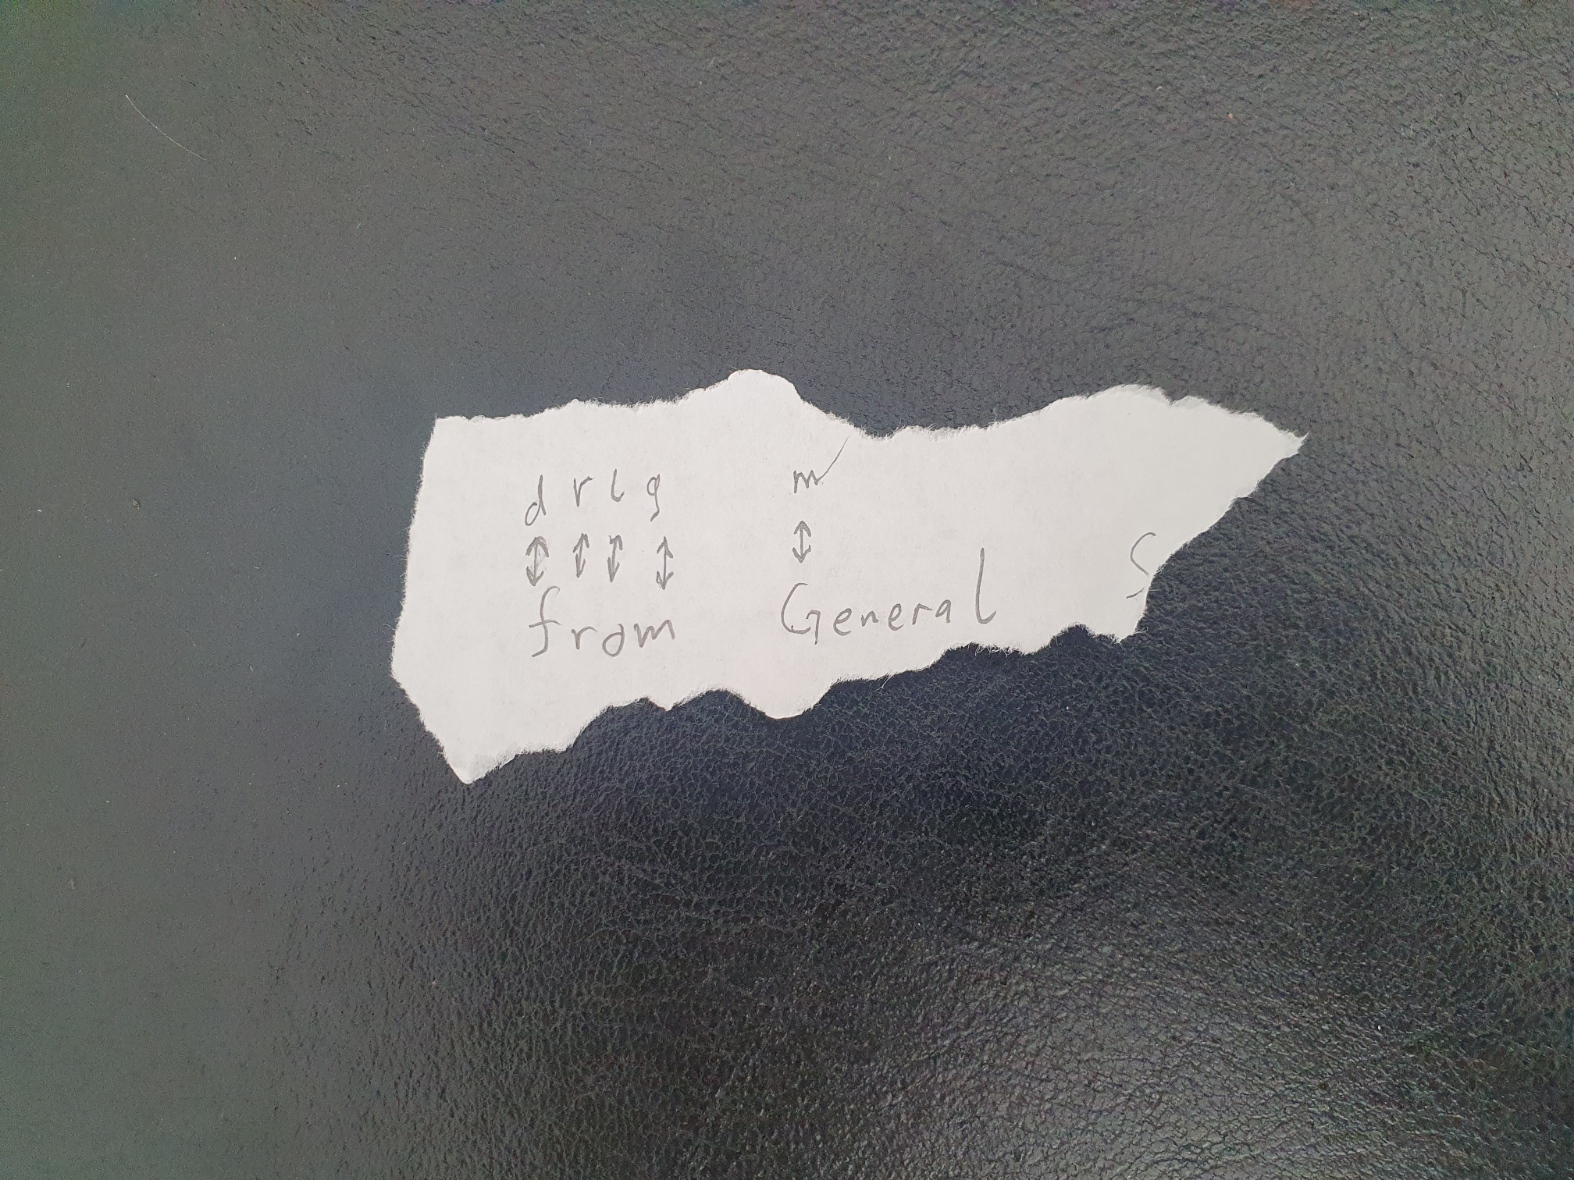 d r l g m
from General S